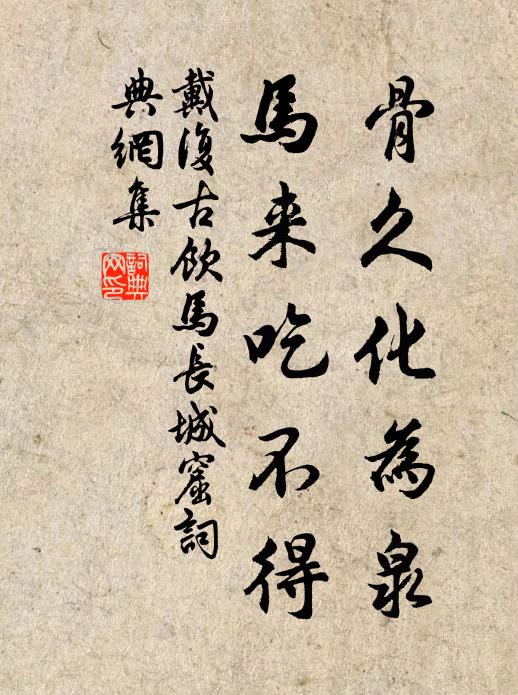 骨久化為泉
馬来吃不得
戴復古飲馬長城窟詞
典網集
詞典網印